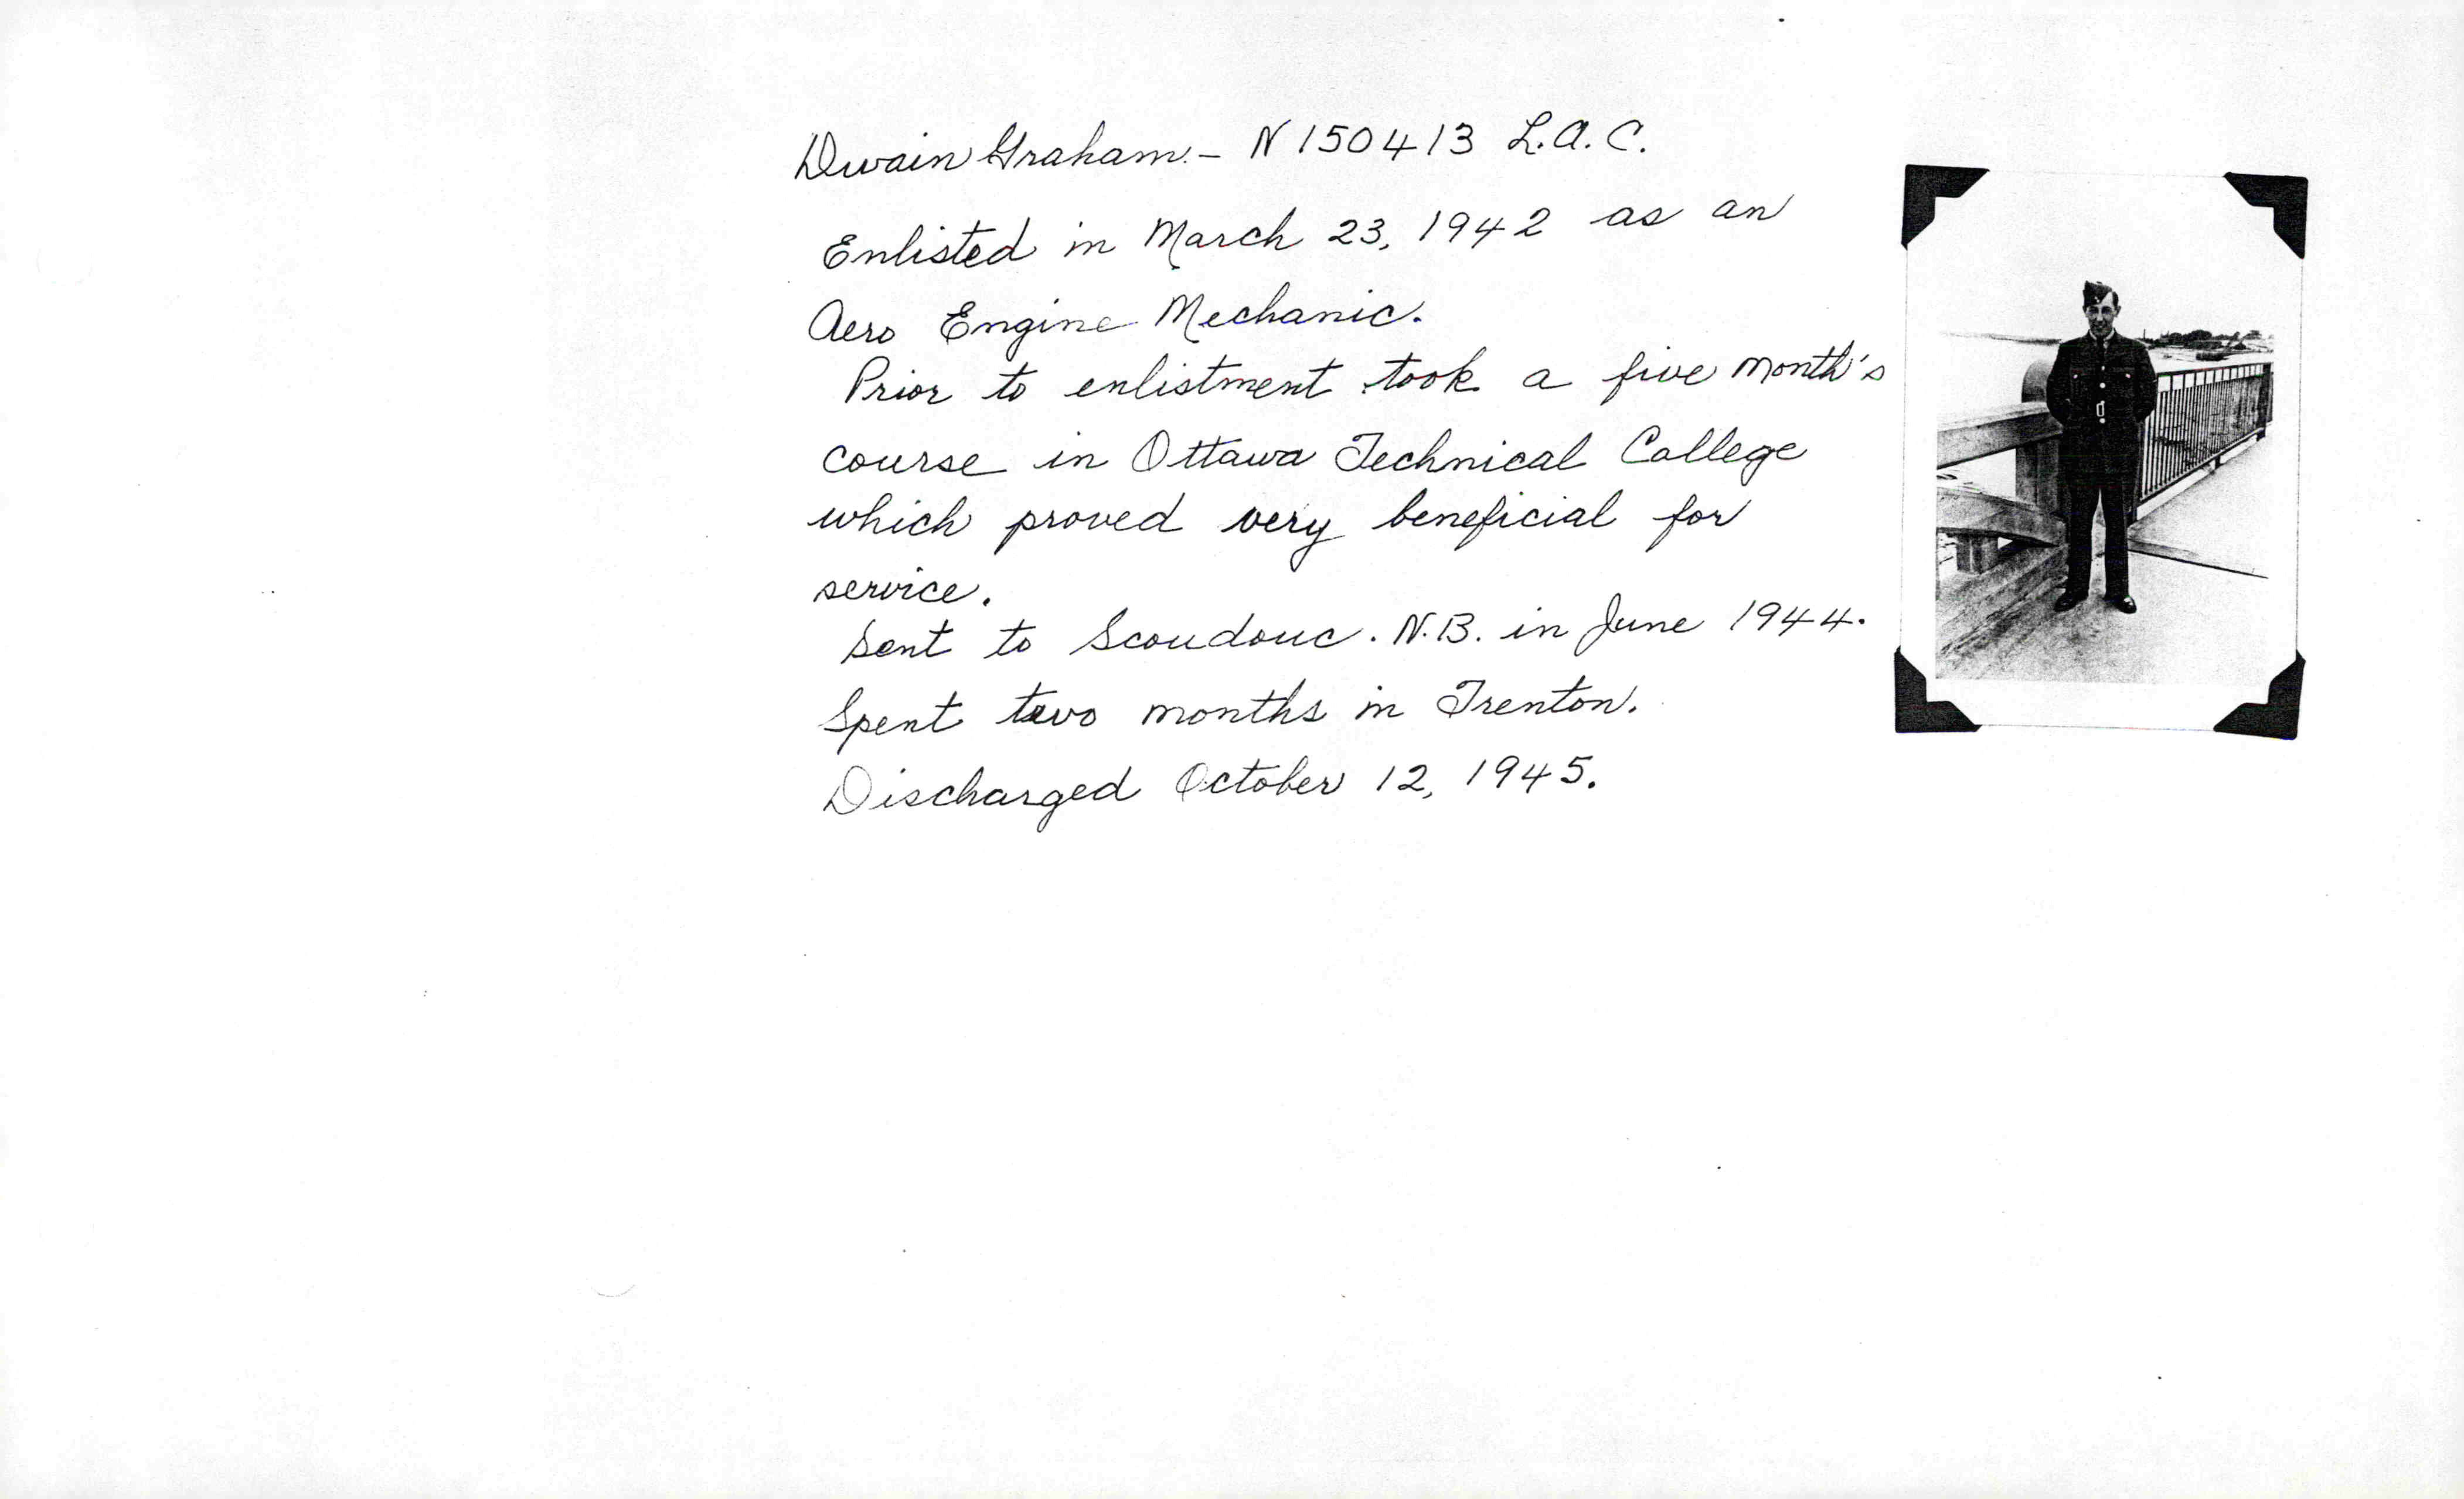 Dwain Graham - N 150413 L.A.C.
Enlisted in March 23, 1942 as an
Aero Engine Mechanic.
Prior to enlistment took a five month's
course in Ottawa Technical College
which proved very beneficial for
service.
Sent to Scoudouc. N.B. in June 1944.
Spent two months in Trenton.
Discharged October 12, 1945.